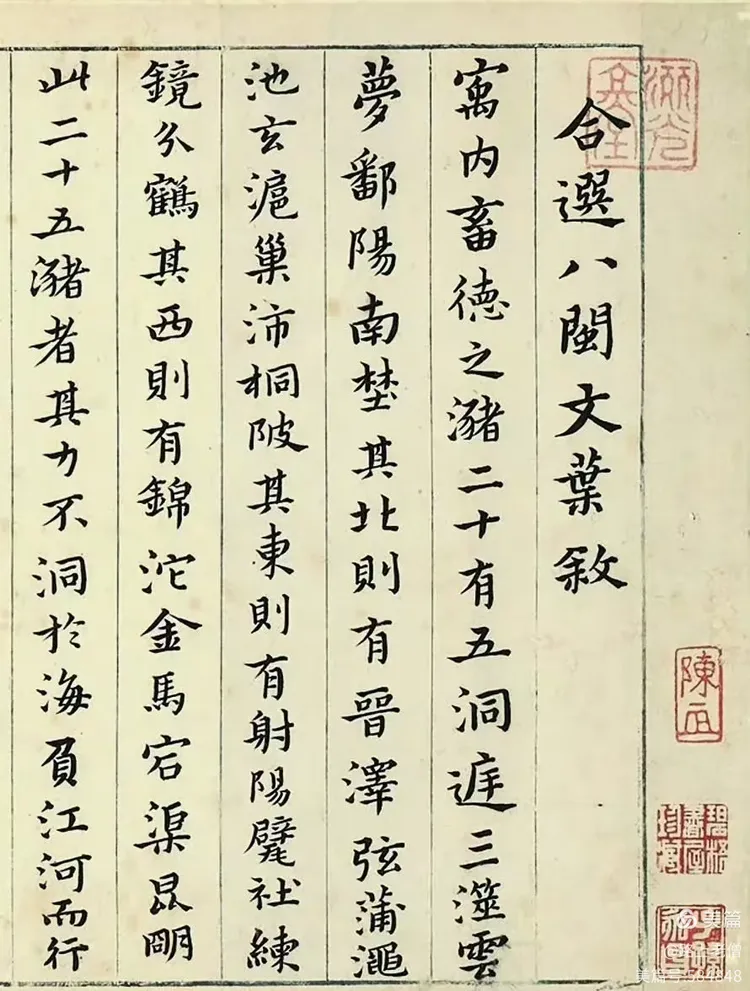 合選八閩文葉敘
寓内畜徳之瀦二十有五洞庭三澨雲
夢鄱陽南埜其北則有晉澤弦蒲澠
池玄滬巢沛桐陂其東則有射陽甓社練
鏡鶴其西則有錦沱金馬宕渠昆明
此二十五瀦者其力不洞於海負江河而行
美篇